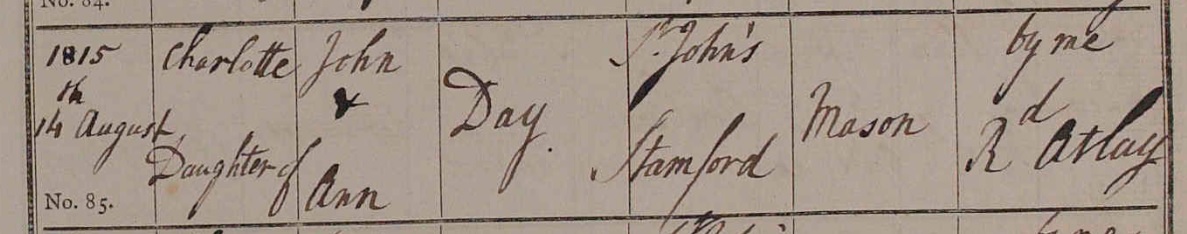 No. 84.
1815
th
14 August
No. 85.
Charlotte
Daughter of
John
&
Ann
Day.
St. John's
Stamford
Mason
by me
Rd Atlay